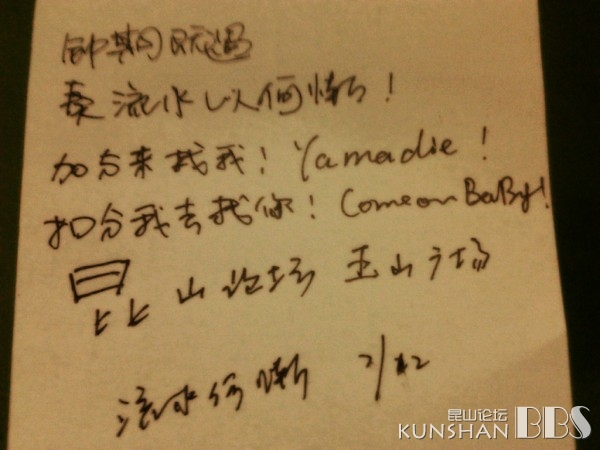 钟期既遇
奏流水以何惭！
加分来找我！Yamadie！
扣分我去找你！Come on BaBy！
昆山论坛 玉山广场
流水何惭 2/12
昆山论坛
KUNSHAN BBS